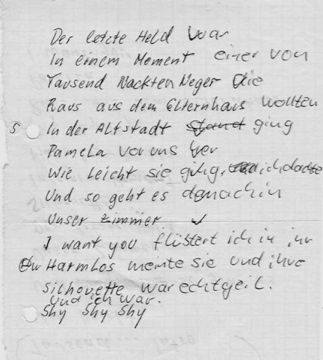 Der letzte Held war
In einem Moment einer von
Tausend Nackten Neger die
Raus aus dem Elternhaus wollten
5 In der Altstadt stand ging
Pamela vor uns her
Wie leicht sie ging, ich dachte
Und so geht es
Unser zimmer
I want you flüstert ich in ihr
Ohr Harmlos meinte sie und ihre
Silhouette war echt geil.
und ich war.
Shy Shy Shy